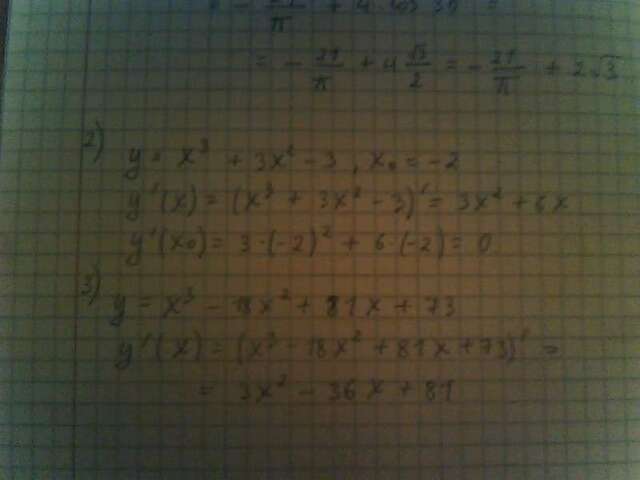 = - 27/π + 4 √3/2 = - 27/π + 2√3
2)
y = x³ + 3x² - 3, x₀ = -2
y'(x) = (x³ + 3x² - 3)' = 3x² + 6x
y'(x₀) = 3·(-2)² + 6·(-2) = 0
3)
y = x³ - 18x² + 81x + 73
y'(x) = (x³ - 18x² + 81x + 73)' =
= 3x² - 36x + 81